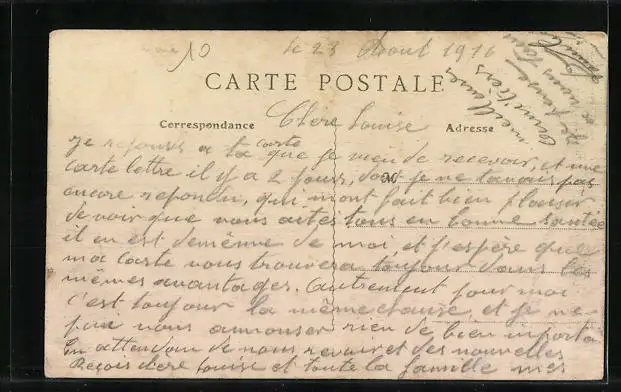 10
le 23 Aout 1916
CARTE POSTALE
Correspondance
Adresse
Chère Louise
Je reponds a ta carte que je viens de recevoir, et une
carte lettre il y a 2 jours, dont je ne t'avais pas
encore repondu, qui m'ont fait bien plaisir
M
de voir que vous autes tous en bonne santée
il en est demême de moi, et j'espère que
ma carte vous trouvera toujour dans les
mêmes avantages. Autrement pour moi
c'est toujour la même chause, et je ne
puis vous annonser rien de bien importa
En attendan de nous revoir et des nouvelles
Reçois chère Louise et toute la famille mes
meilleures
amitiers